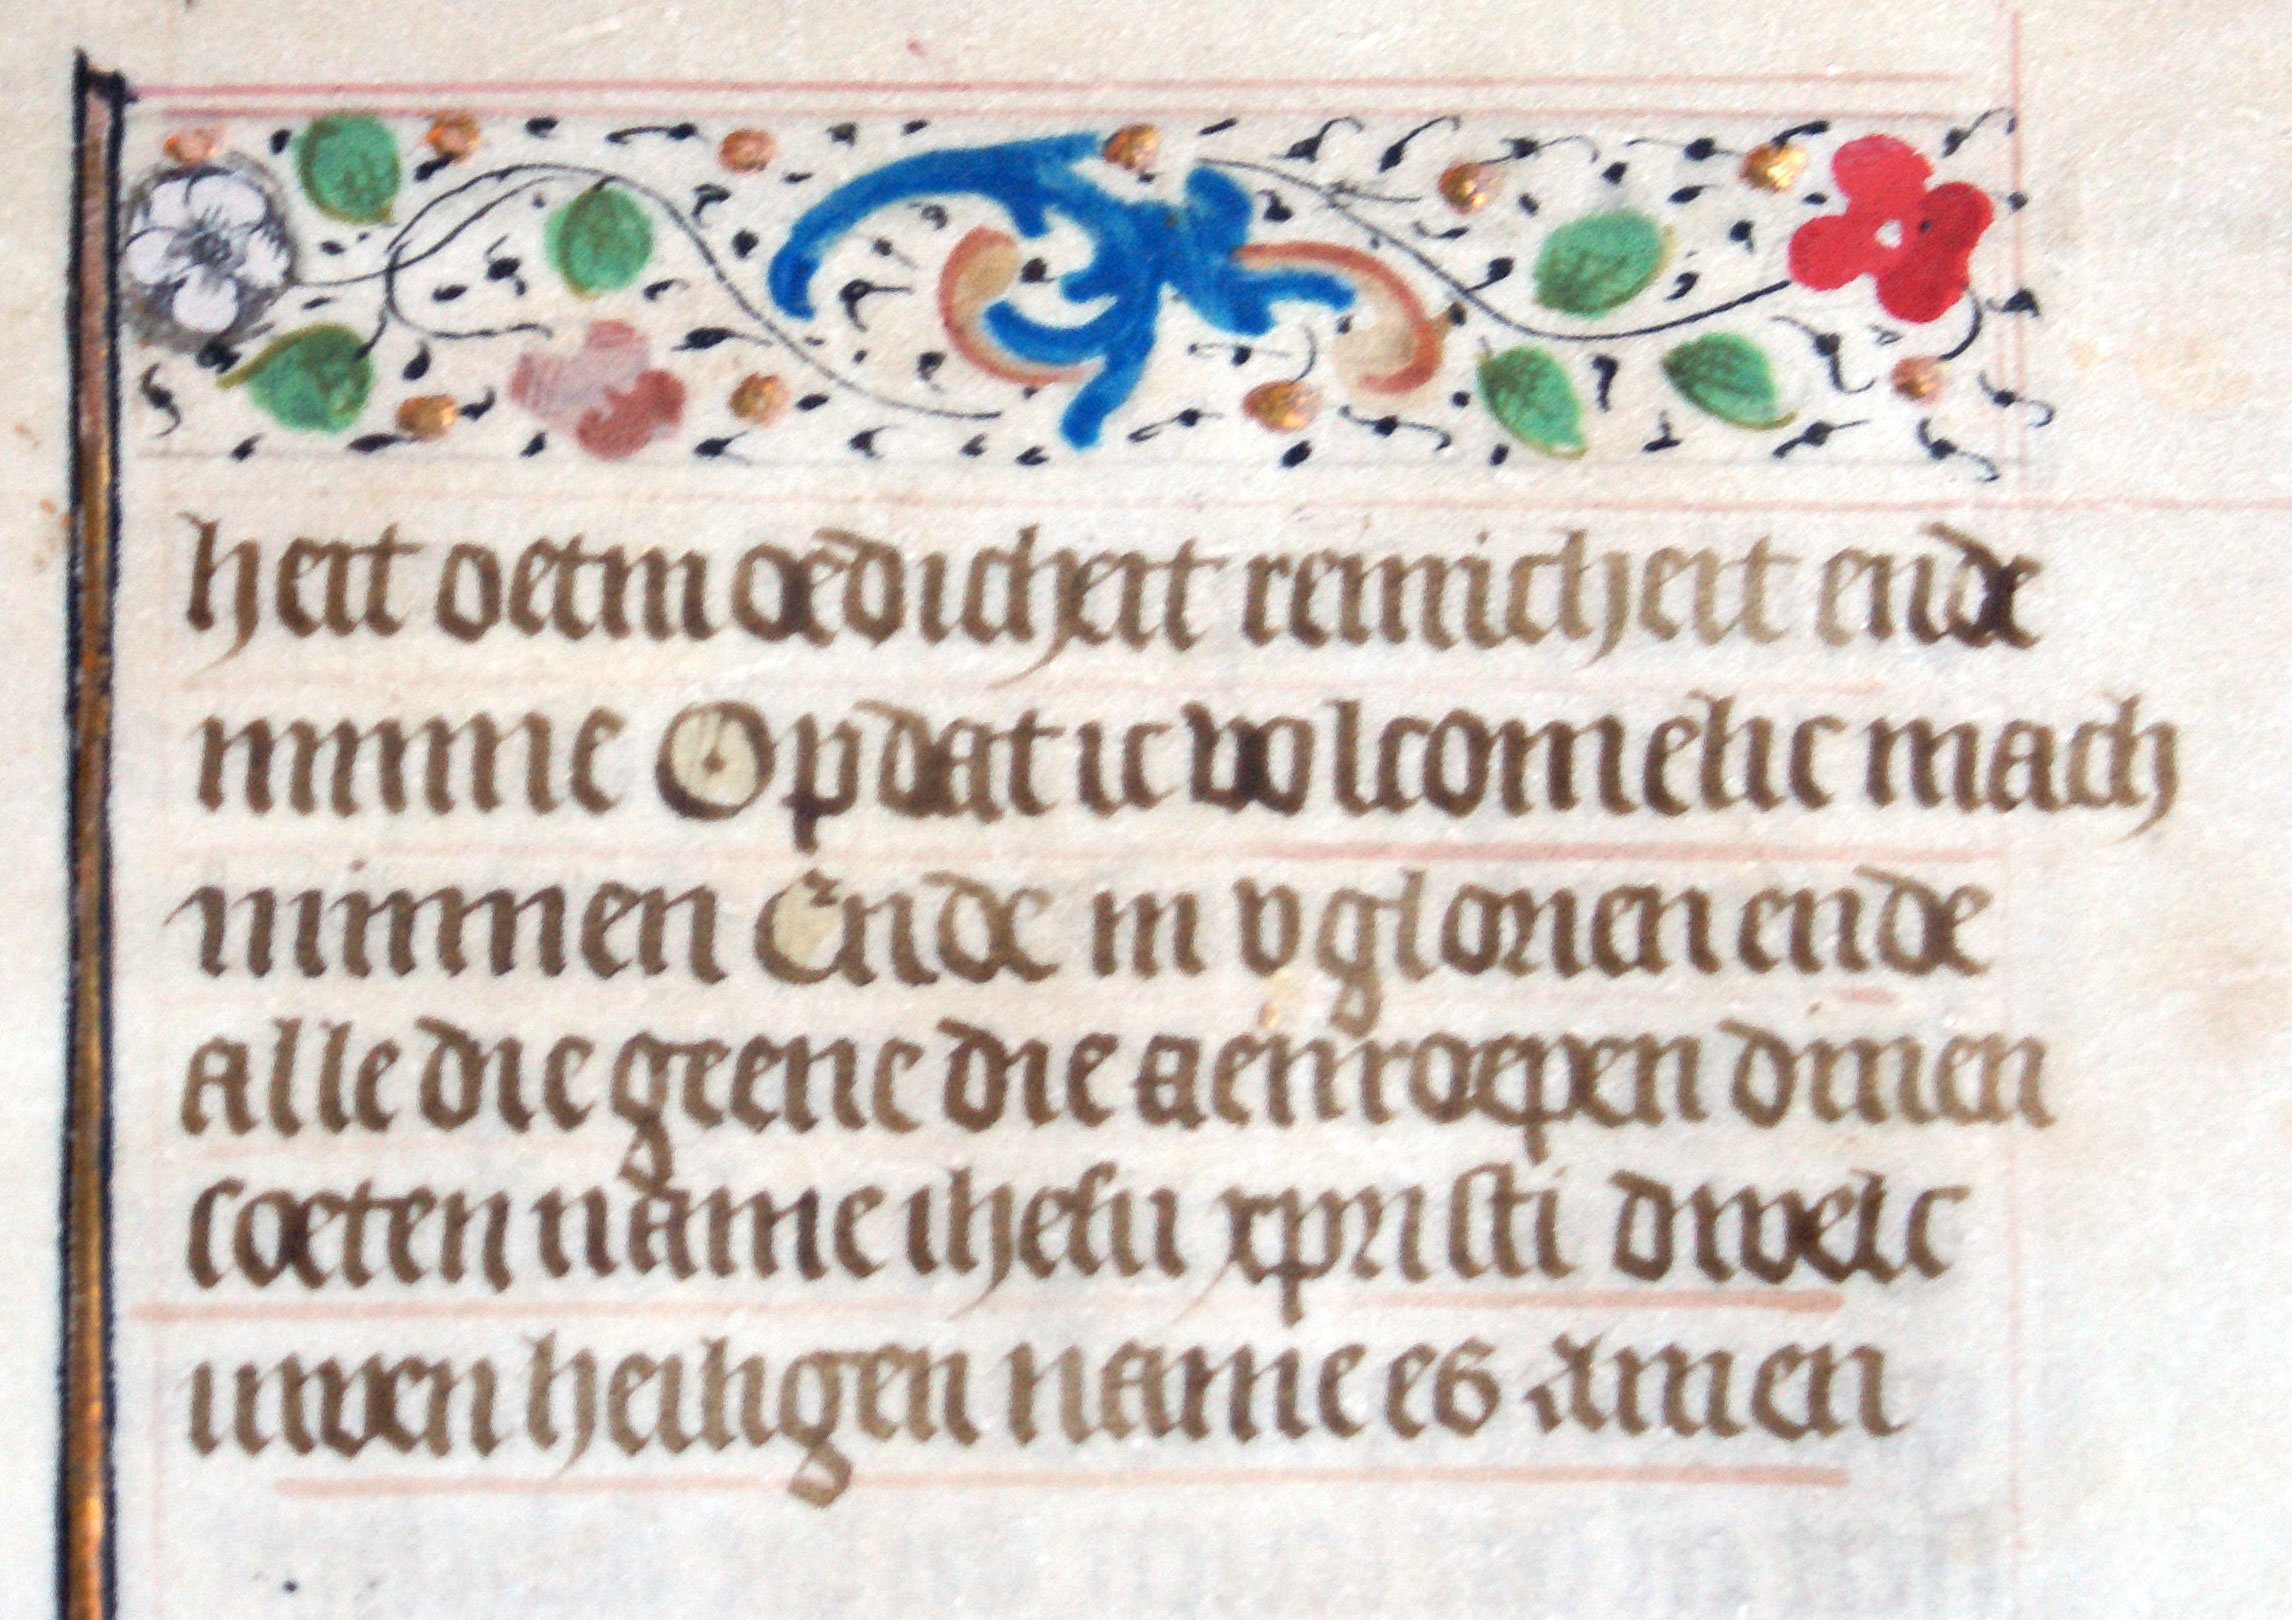 heit oetmoedicheit reinicheit ende
minne Opdat ic volcomelic mach
minnen Ende in v glorien ende
alle die geene die aenroepen dinen
soeten name ihesu xpristi dwelc
uwen heiligen name es amen